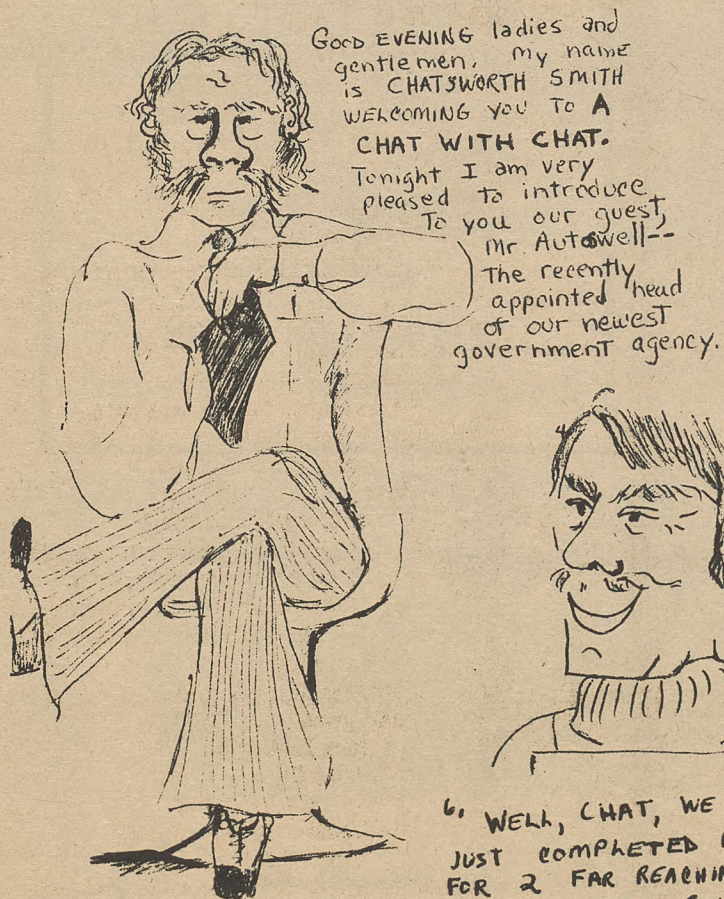 GOOD EVENING ladies and
gentlemen. My name
is CHATSWORTH SMITH
WELCOMING YOU TO A
CHAT WITH CHAT.
Tonight I am very
pleased to introduce
To you our guest,
Mr. Autowell--
The recently
appointed head
of our newest
government agency.
6. WELL, CHAT, WE
JUST COMPLETED
FOR 2 FAR REACHIN